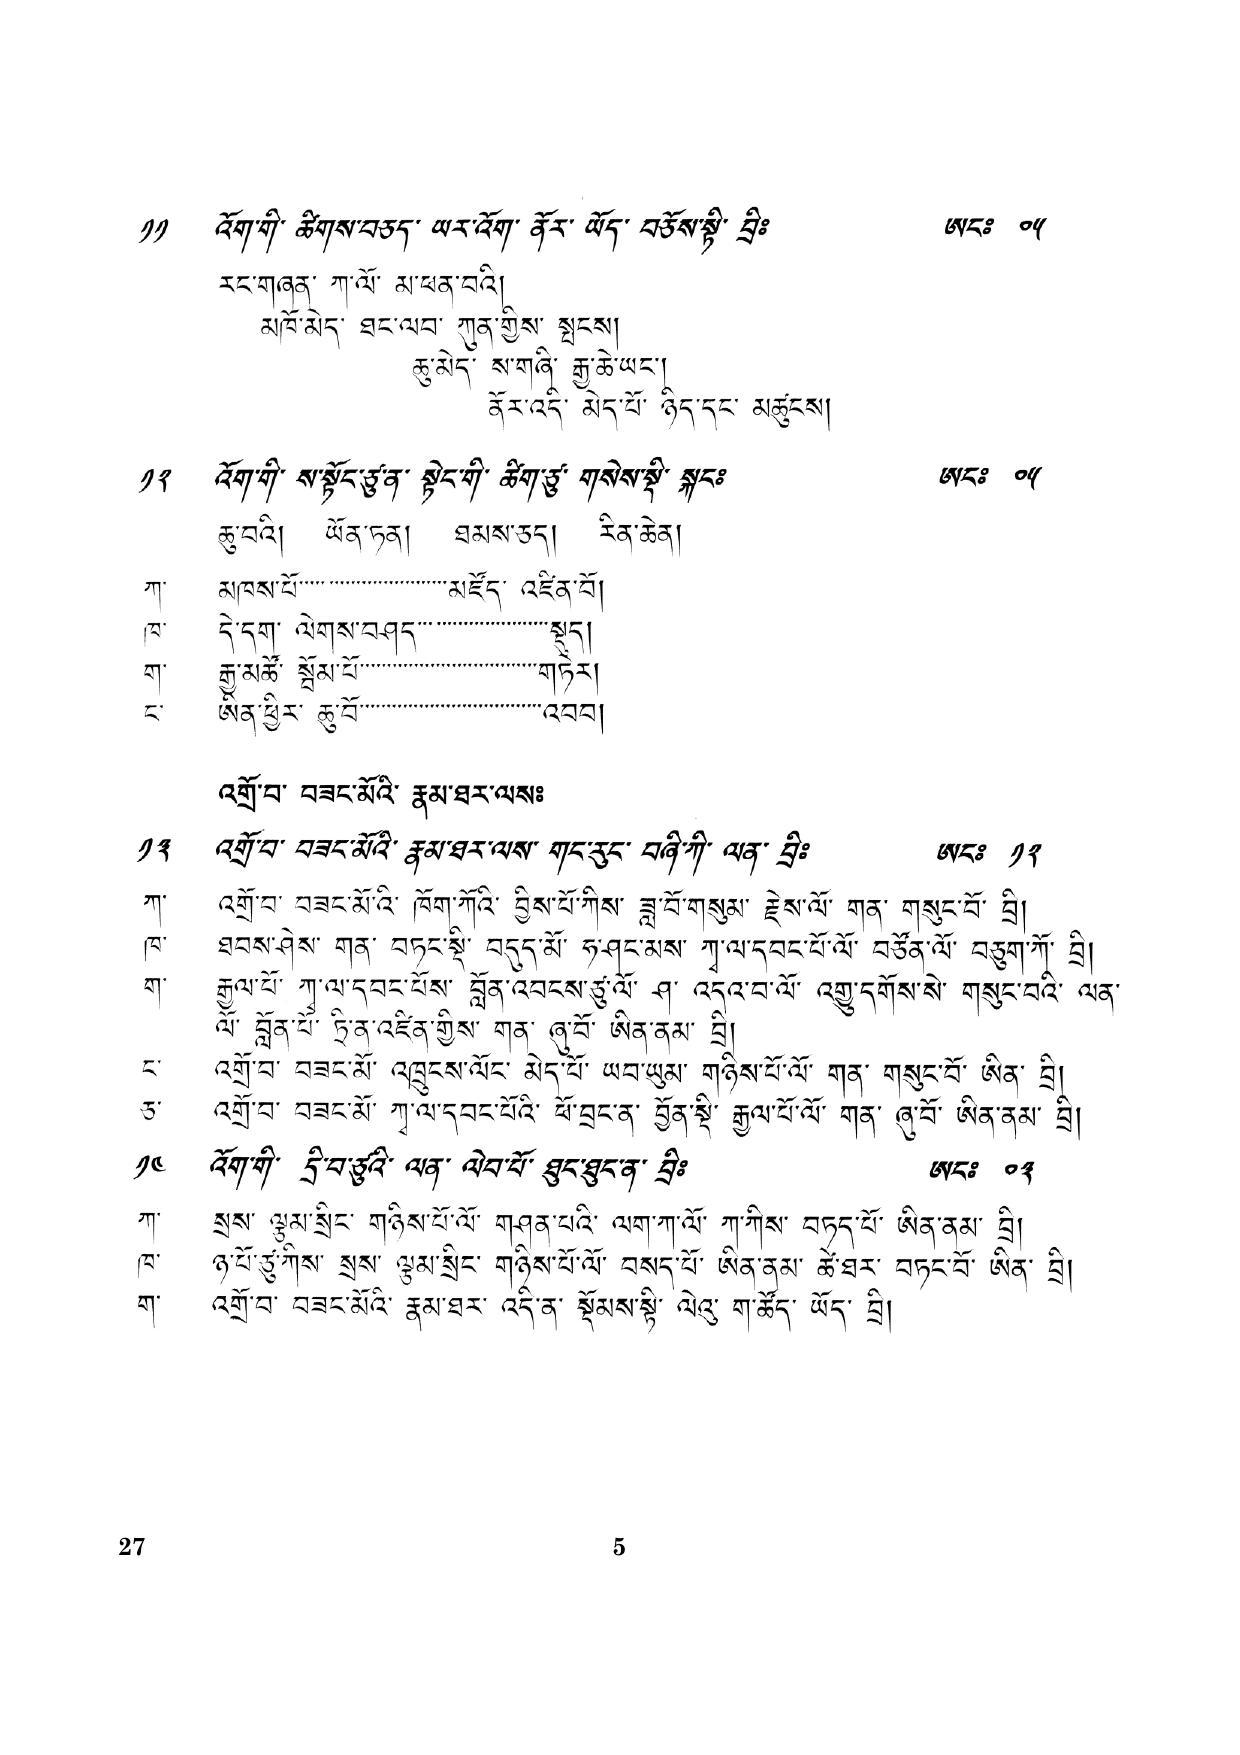 ༡༡ འོག་གི་ ཚིགས་བཅད་ ཡར་འོག་ ནོར་ ཡོད་ བཅོས་སྟི་ བྲིཿ ཨངཿ ༠༥
རང་གཞན་ ཀ་ལོ་ མ་ཕན་བའི།
མཁོ་མེད་ ཐང་ལབ་ ཀུན་གྱིས་ སྤངས།
ཆུ་མེད་ ས་གཞི་ རྒྱ་ཆེ་ཡང་།
ནོར་འདི་ མེད་པོ་ ཉིད་དང་ མཚུངས།
༡༢ འོག་གི་ ས་སྟོང་ཙུ་ན་ སྟེང་གི་ ཚིག་ཙུ་ གསེས་སྡི་ སྐངཿ ཨངཿ ༠༥
ཆུ་བའི། ཡོན་ཏན། ཐམས་ཅད། རིན་ཆེན།
ཀ་ མཁས་པོ་........................མཛོད་ འཛིན་བོ།
ཁ་ དེ་དག་ ལེགས་བཤད་......................སྡུད།
ག་ རྒྱ་མཚོ་ སྡོམ་པོ་..............................གཏེར།
ང་ ཨིན་ཕྱིར་ ཆུ་བོ་..............................འབབ།
འགྲོ་བ་ བཟང་མོའི་ རྣམ་ཐར་ལསཿ
༡༣ འགྲོ་བ་ བཟང་མོའི་ རྣམ་ཐར་ལས་ གང་རུང་ བཞི་ཀི་ ལན་ བྲིཿ ཨངཿ ༡༢
ཀ་ འགྲོ་བ་ བཟང་མོ་འི་ ཁོག་ཀོའི་ བྱིས་པོ་ཀིས་ ཟླ་བོ་གསུམ་ རྗེས་ལོ་ གན་ གསུང་བོ་ བྲི།
ཁ་ ཐབས་ཤེས་ གན་ བཏང་སྡི་ བདུད་མོ་ ཧ་ཤང་མས་ ཀཱ་ལ་དབང་པོ་ལོ་ བཙོན་ལོ་ བཙུག་ཀོ་ བྲི།
ག་ རྒྱལ་པོ་ ཀཱ་ལ་དབང་པོས་ བློན་འབངས་ཙུ་ལོ་ ཤ་ འདའ་བ་ལོ་ འགྱུ་དགོས་སེ་ གསུང་བའི་ ལན་
ལོ་ བློན་པོ་ ཏི་ན་འཛིན་གྱིས་ གན་ ཞུ་བོ་ ཨིན་ནམ་ བྲི།
ང་ འགྲོ་བ་ བཟང་མོ་ འཁྲུངས་ལོང་ མེད་པོ་ ཡབ་ཡུམ་ གཉིས་པོ་ལོ་ གན་ གསུང་བོ་ ཨིན་ བྲི།
ཅ་ འགྲོ་བ་ བཟང་མོ་ ཀཱ་ལ་དབང་པོའི་ ཕོ་བྲང་ན་ བྱོན་སྡི་ རྒྱལ་པོ་ལོ་ གན་ ཞུ་བོ་ ཨིན་ནམ་ བྲི།
༡༤ འོག་གི་ དྲི་བ་ཙུའི་ ལན་ ལེབ་པོ་ ཐུང་ཐུང་ན་ བྲིཿ ཨངཿ ༠༣
ཀ་ སྲས་ ལྕམ་སྲིང་ གཉིས་པོ་ལོ་ གཤན་པའི་ ལག་ཀ་ལོ་ ཀ་ཀིས་ བཏད་པོ་ ཨིན་ནམ་ བྲི།
ཁ་ ཉ་པོ་ཙུ་ཀིས་ སྲས་ ལྕམ་སྲིང་ གཉིས་པོ་ལོ་ བསད་པོ་ ཨིན་ནམ་ ཚེ་ཐར་ བཏང་བོ་ ཨིན་ བྲི།
ག་ འགྲོ་བ་ བཟང་མོའི་ རྣམ་ཐར་ འདི་ན་ སྡོམས་སྟི་ ལེའུ་ ག་ཚོད་ ཡོད་ བྲི།
27 5